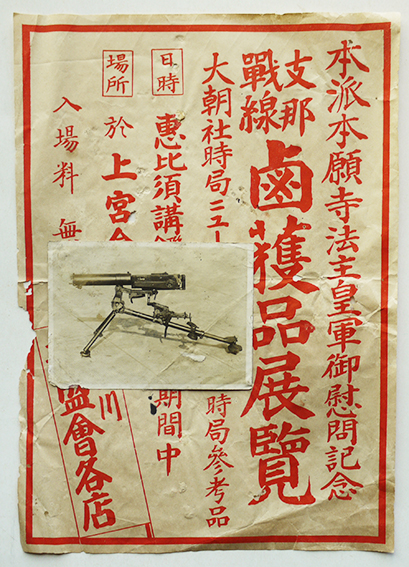 本派本願寺法主皇軍御慰問記念
支那
戰線
鹵獲品展覽
大朝社時局ニュー
時局參考品
日時
惠比須講
期間中
場所
於上宮會
入場料 無
川
盟會各店